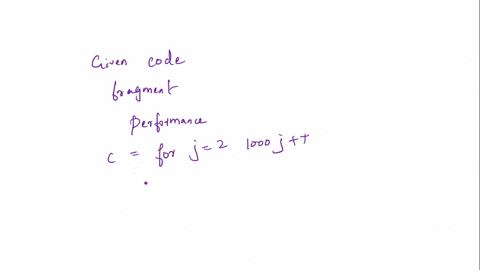 Given code
fragment
performance
c = for j=2 1000 j++